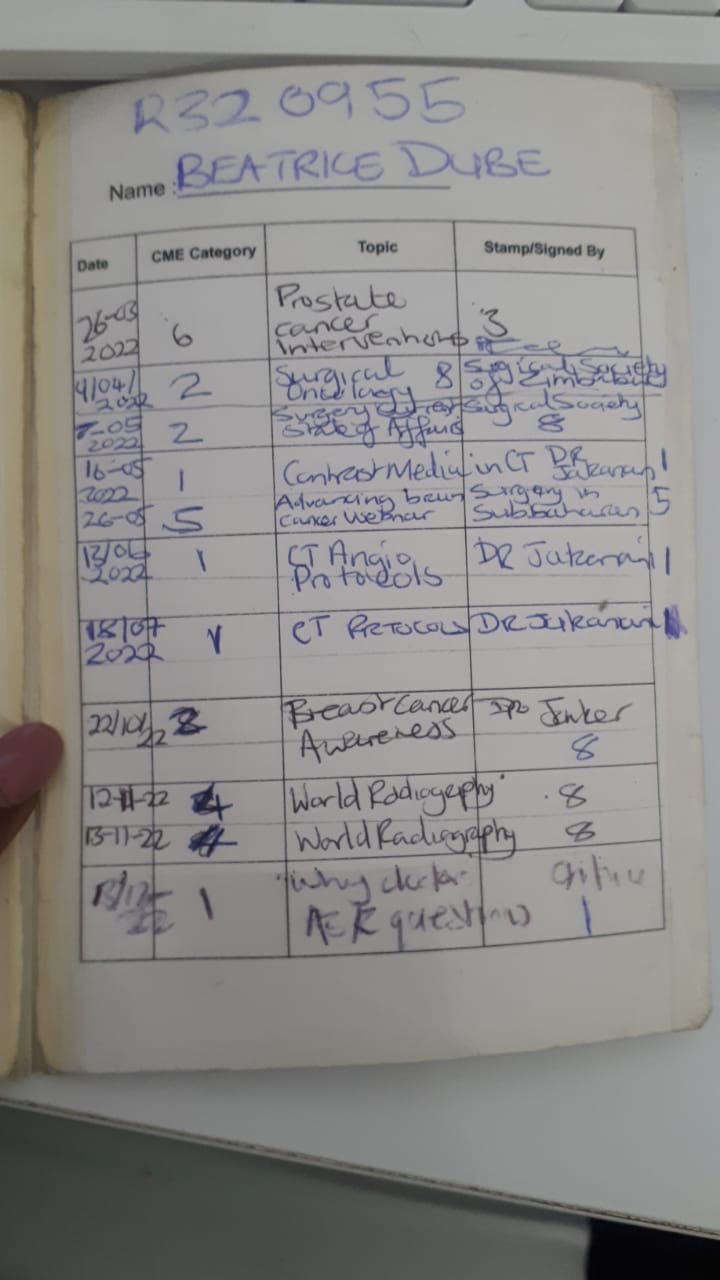 R320955
Name: BEATRICE DUBE
Date CME Category Topic Stamp/Signed By
26-03 2022 6 Prostate cancer interventions 3
4/04/2022 2 Surgical Oncology 8 Surgical Society of Zimbabwe
7-05 2022 2 Surgery State of Affairs Surgical Society 8
16-05 2022 1 Contrast Media in CT DR 1
26-05 5 Advancing brain cancer webinar Surgery in Subsaharan 5
13/06 2022 1 CT Angio Protocols DR 1
18/07 2022 1 CT PROTOCOLS DR
22/10/22 Breast Cancer Awareness 8
12-11-22 4 World Radiography 8
13-11-22 4 World Radiography 8
22 1 Why ASK questions 1